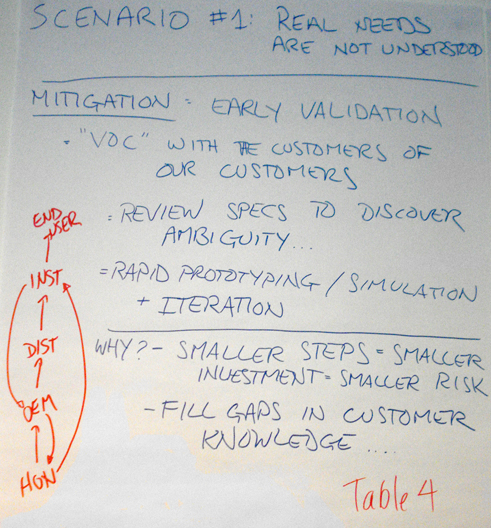 SCENARIO #1: REAL NEEDS
ARE NOT UNDERSTOOD
MITIGATION = EARLY VALIDATION
= "VOC" WITH THE CUSTOMERS OF
OUR CUSTOMERS
= REVIEW SPECS TO DISCOVER
AMBIGUITY...
= RAPID PROTOTYPING / SIMULATION
+ ITERATION
WHY? - SMALLER STEPS = SMALLER
INVESTMENT = SMALLER RISK
- FILL GAPS IN CUSTOMER
KNOWLEDGE ....
END
USER
INST
DIST
OEM
HON
Table 4